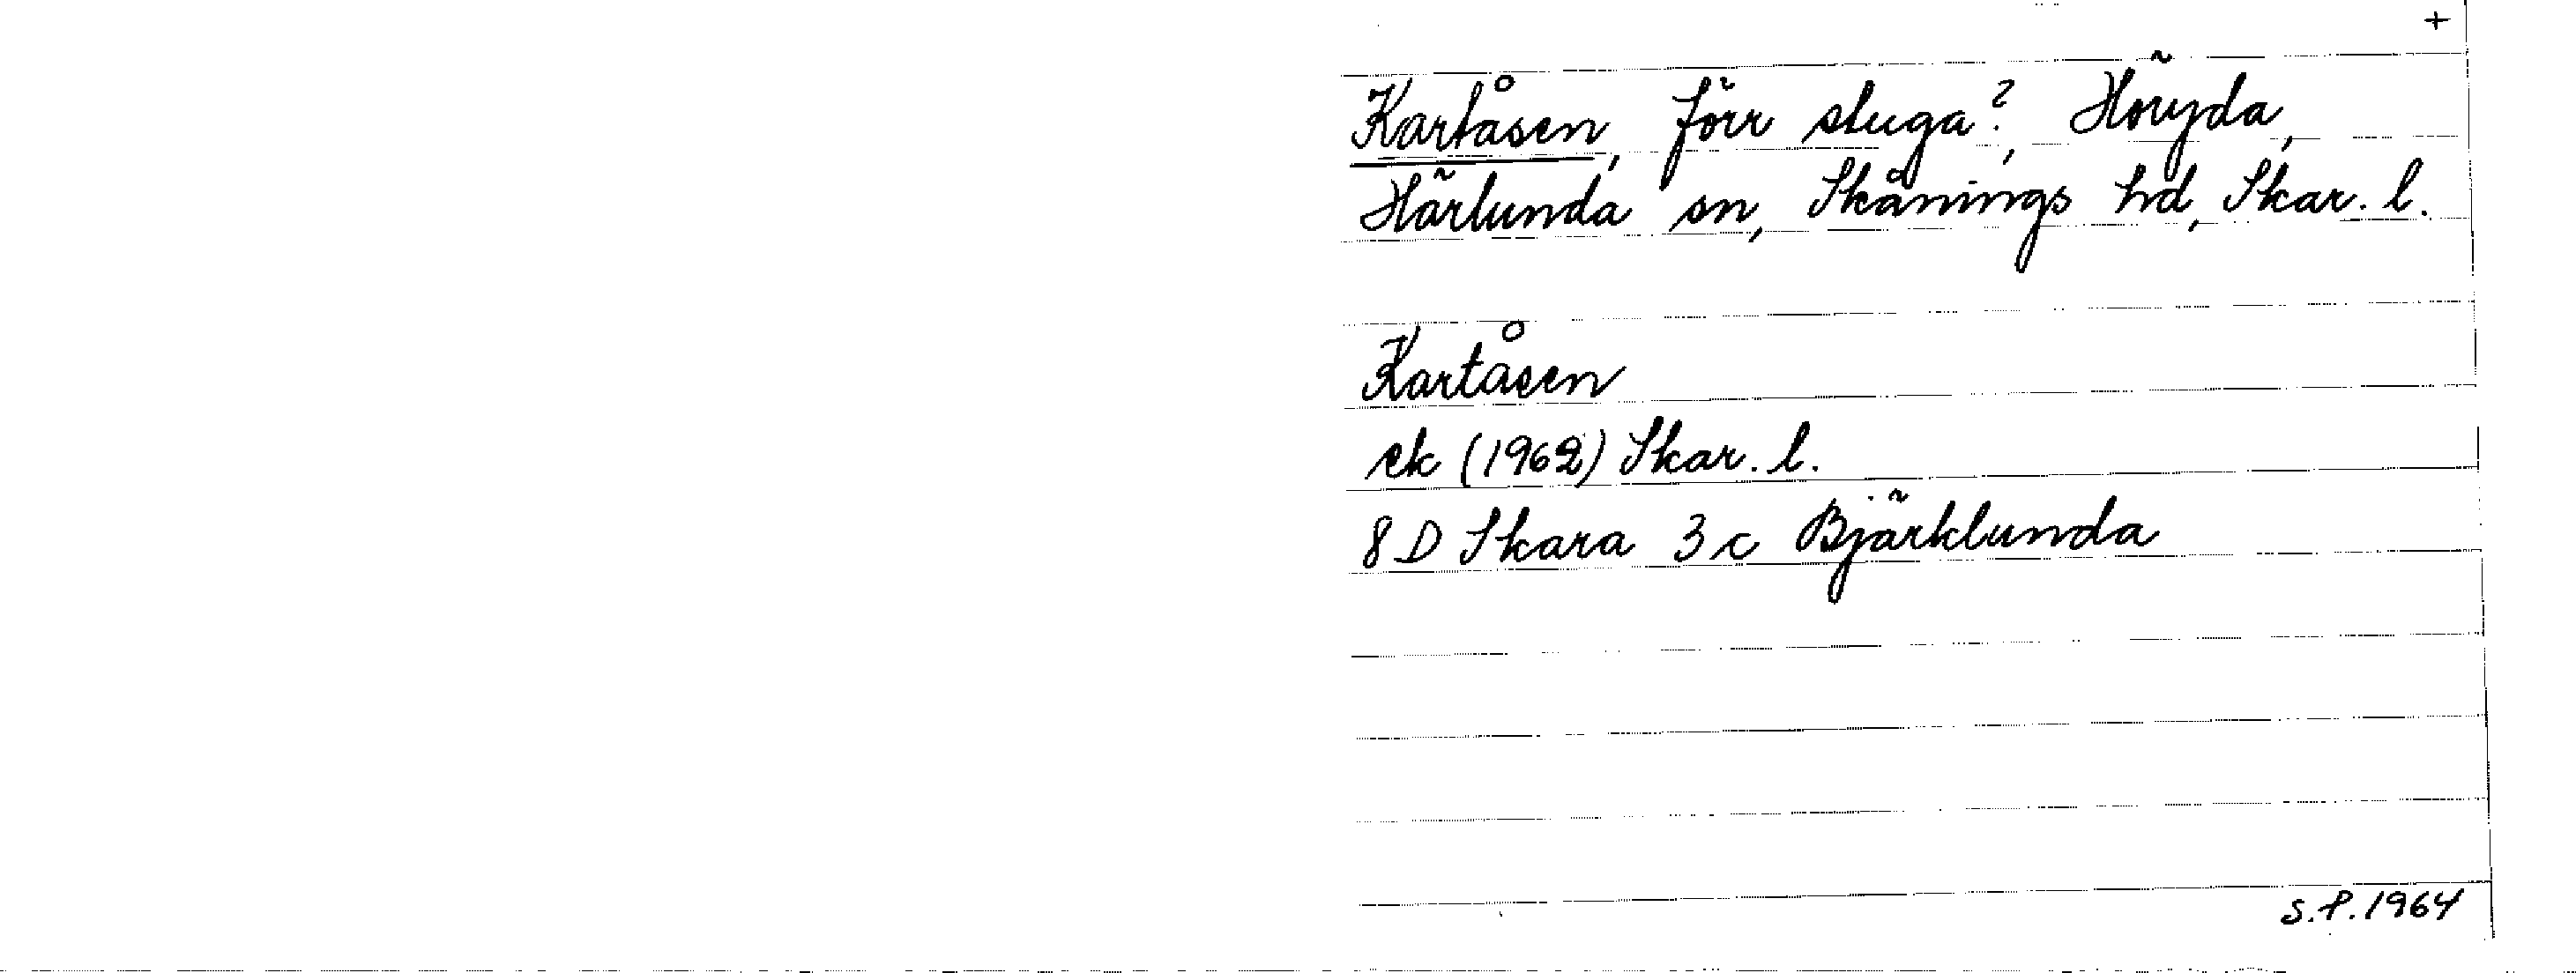 +
Kartåsen, förr stuga?, Höryda,
Härlunda sn, Skånings hd, Skar. l.
Kartåsen
ek (1962) Skar. l.
8 D Skara 3 c Bjärklunda
S.P. 1964